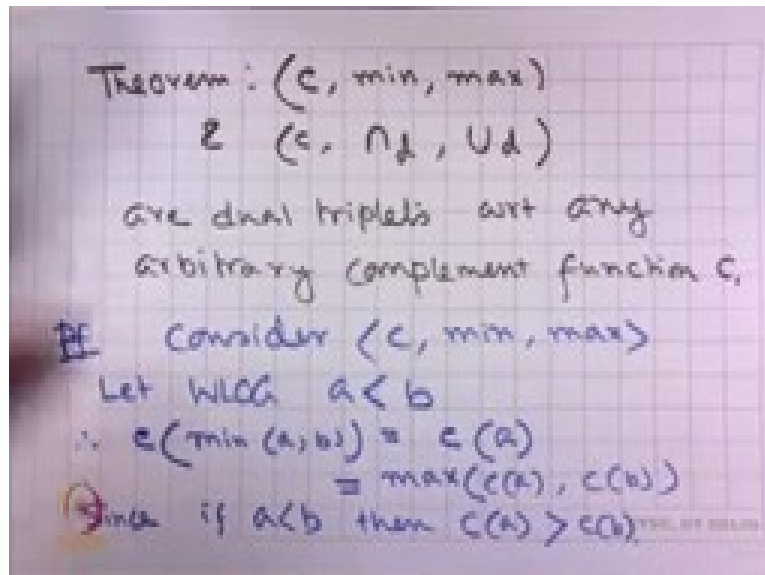 Theorem : (c, min, max)
& (c, ∩d, ∪d)
are dual triplets wrt any
arbitrary complement function C.
Pf Consider <c, min, max>
Let WLOG a < b
∴ c(min (a, b)) = c(a)
= max(c(a), c(b))
Since if a<b then c(a) > c(b)